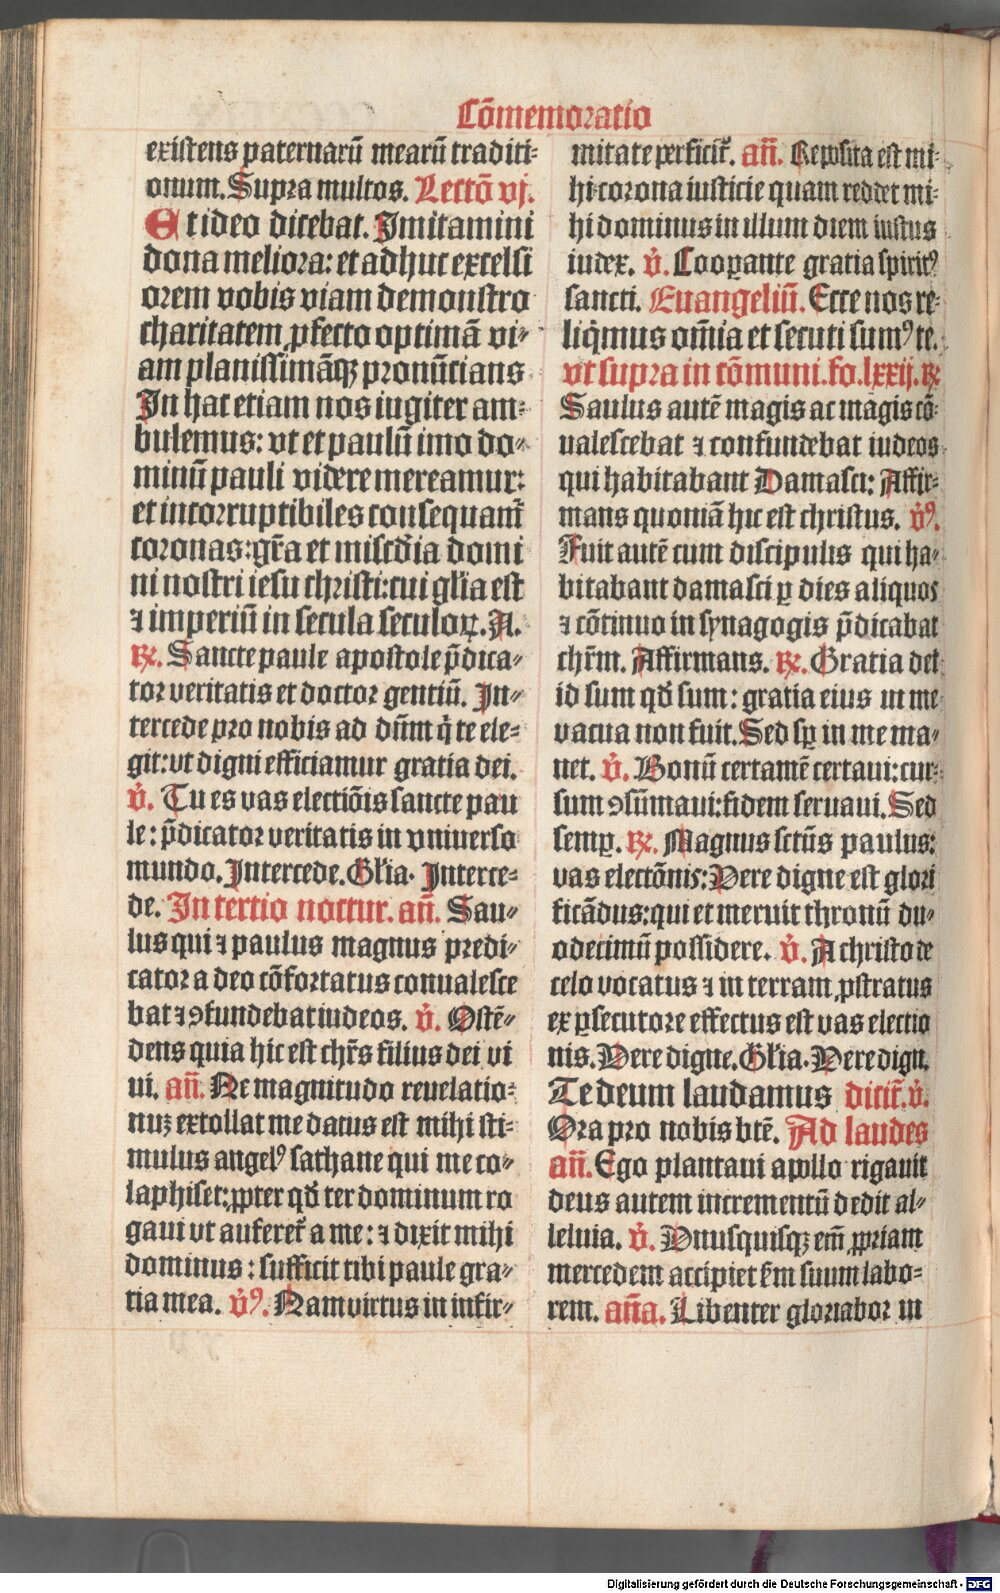 Cõmemoratio
existens paternarũ mearũ traditi-
onum. Supra multos. Lectõ vj.
Et ideo dicebat. Imitamini
dona meliora: et adhuc excelsi
orem vobis viam demonstro
charitatem ꝓfecto optimã vi-
am planissimãqꝫ pronũcians
In hac etiam nos iugiter am-
bulemus: vt et paulũ imo do-
minũ pauli videre mereamur:
et incorruptibiles consequamr̃
coronas: gr̃a et misc̃dia domi
ni nostri iesu christi: cui gl̃ia est
⁊ imperiũ in secula seculoꝝ. A.
R̸. Sancte paule apostole p̃dica-
tor veritatis et doctor gentiũ. In-
tercede pro nobis ad dñm q̇ te ele-
git: vt digni efficiamur gratia dei.
v̇. Tu es vas electiõis sancte pau
le: p̃dicator veritatis in vniuerso
mundo. Intercede. Gl̃ia. Interce-
de. In tertio noctur. añ. Sau-
lus qui ⁊ paulus magnus predi-
cator a deo cõfortatus conualesce
bat ⁊ ꝯfundebat iudeos. v̇. Ostẽ-
dens quia hic est chr̃s filius dei vi
ui. añ. Ne magnitudo reuelatio-
nuꝫ extollat me datus est mihi sti-
mulus angelꝰ sathane qui me co-
laphiset: ꝓpter qđ ter dominum ro
gaui vt auferet̃ a me: ⁊ dixit mihi
dominus: sufficit tibi paule gra-
tia mea. v̇ꝰ. Nam virtus in infir-
mitate perficit̃. añ. Reposita est mi-
hi corona iusticie quam reddet mi-
hi dominus in illum diem iustus
iudex. v̇. Cooꝑante gratia spiritꝰ
sancti. Euangeliũ. Ecce nos re-
liq̇mus om̃ia et secuti sumꝰ te.
vt supra in cõmuni. fo. lxxij. R̸
Saulus autẽ magis ac magis cõ-
ualescebat ⁊ confundebat iudeos
qui habitabant Damasci: Affir-
mans quoniã hic est christus. v̇ꝰ.
Fuit autẽ cum discipulis qui ha-
bitabant damasci ꝑ dies aliquos
⁊ cõtinuo in synagogis p̃dicabat
chr̃m. Affirmans. R̸. Gratia dei
id sum qđ sum: gratia eius in me
vacua non fuit. Sed sꝑ in me ma-
net. v̇. Bonũ certamẽ certaui: cur-
sum ꝯsũmaui: fidem seruaui. Sed
semꝑ. R̸. Magnus sctũs paulus:
vas electõnis: Vere digne est glori
ficãdus: qui et meruit thronũ du-
odecimũ possidere. v̇. A christo de
celo vocatus ⁊ in terram ꝓstratus
ex ꝑsecutore effectus est vas electio
nis. Vere digne. Gl̃ia. Vere dign.
Te deum laudamus dicit̃. v̇.
Ora pro nobis btẽ. Ad laudes
añ. Ego plantaui apollo rigauit
deus autem incrementũ dedit al-
leluia. v̇. Vnusquisqꝫ em̃ ꝓpriam
mercedem accipiet s̃m suum labo-
rem. aña. Libenter gloriabor in
Digitalisierung gefördert durch die Deutsche Forschungsgemeinschaft - DFG